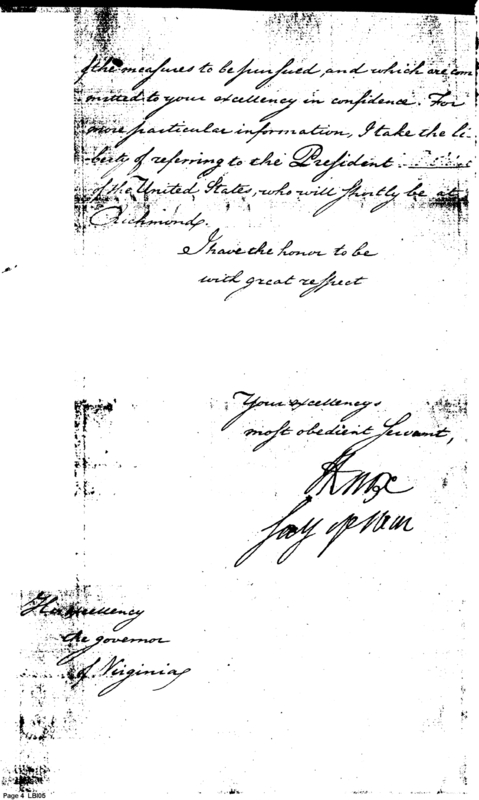 of the measures to be pursued, and which are com
mitted to your excellency in confidence. For
more particular information, I take the li-
berty of referring to the President
of the United States, who will shortly be at
Richmond.
I have the honor to be
with great respect
Your excellencys
most obedient servant,
H Knox
Secy of War
His excellency
the governor
of Virginia
Page 4 LBI05